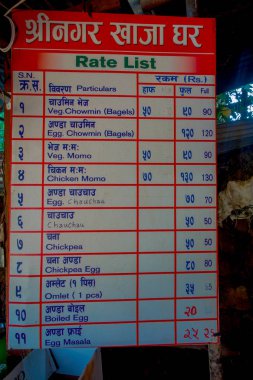 श्रीनगर खाजा घर
Rate List
S.N. रकम (Rs.)
क्र.स. विवरण Particulars हाफ फुल Full
१ चाउमिन भेज ५० ९० 90
Veg.Chowmin (Bagels)
२ अण्डा चाउमिन १२० 120
Egg. Chowmin (Bagels)
३ भेज म:म: ५० ९० 90
Veg. Momo
४ चिकन म:म: ७० १३० 130
Chicken Momo
५ अण्डा चाउचाउ ७० 70
Egg. Chauchau
६ चाउचाउ ५० 50
Chauchau
७ चना ५० 50
Chickpea
८ चना अण्डा ८० 80
Chickpea Egg
९ अम्लेट (१ पिस) ३५
Omlet (1 pcs)
१० अण्डा बोइल २०
Boiled Egg
११ अण्डा फ्राई २५ 25
Egg Masala